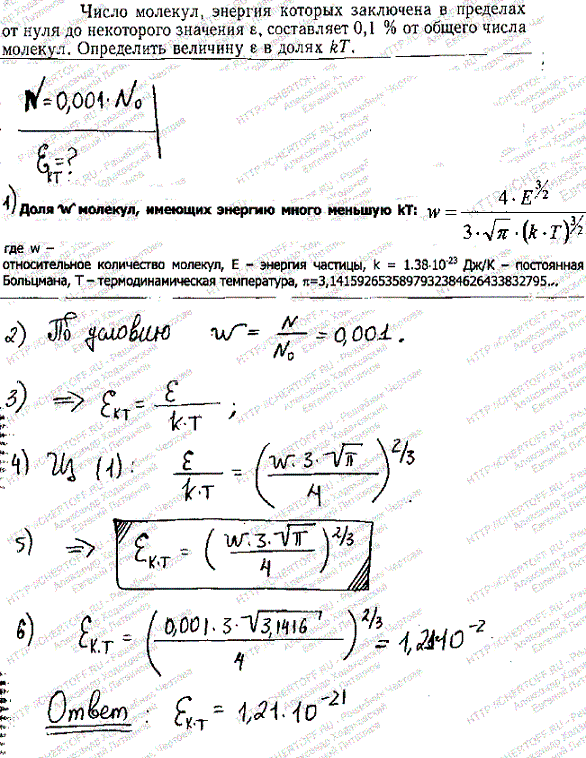 Число молекул, энергия которых заключена в пределах
от нуля до некоторого значения ε, составляет 0,1 % от общего числа
молекул. Определить величину ε в долях kT.
N = 0,001 · N₀
ε_kT = ?
1) Доля w молекул, имеющих энергию много меньшую kT: w = 4 · E^(3/2) / (3 · √π · (k · T)^(3/2))
где w –
относительное количество молекул, E – энергия частицы, k = 1.38·10⁻²³ Дж/К – постоянная
Больцмана, T – термодинамическая температура, π=3,1415926535897932384626433832795...
2) По условию w = N/N₀ = 0,001.
3) => ε_kT = ε / k·T ;
4) Из (1): ε / k·T = (w·3·√π / 4)^(2/3)
5) => ε_k·T = (w·3·√π / 4)^(2/3)
6) ε_k·T = (0,001·3·√3,1416 / 4)^(2/3) = 1,21·10⁻²
Ответ : ε_k·T = 1,21·10⁻²¹
HTTP://CHERTOFF.RU - Решебник Чертова
Александр Ходанович